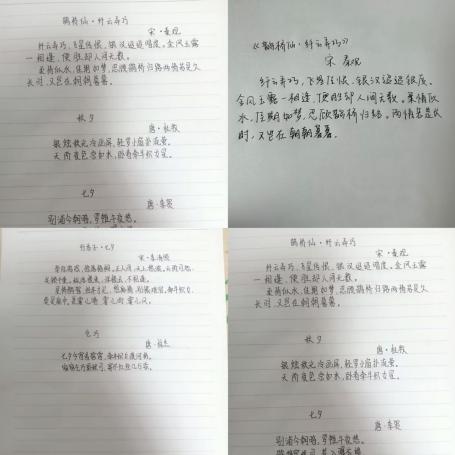 鹊桥仙·纤云弄巧
宋·秦观
纤云弄巧,飞星传恨,银汉迢迢暗度。金风玉露
一相逢,便胜却人间无数。
柔情似水,佳期如梦,忍顾鹊桥归路两情若是久
长时,又岂在朝朝暮暮。
秋夕
唐·杜牧
银烛秋光冷画屏,轻罗小扇扑流萤。
天阶夜色凉如水,卧看牵牛织女星。
七夕
唐·李贺
别浦今朝暗,罗帷午夜愁。
《鹊桥仙·纤云弄巧》
宋 秦观
纤云弄巧,飞星传恨,银汉迢迢暗度。
金风玉露一相逢,便胜却人间无数。柔情似
水,佳期如梦,忍顾鹊桥归路。两情若是久长
时,又岂在朝朝暮暮。
行香子·七夕
宋·李清照
草际鸣蛩,惊落梧桐。正人间、天上愁浓。云阶月地,
关锁千重。纵浮槎来,浮槎去,不相逢。
星桥鹊驾,经年才见,想离情、别恨难穷。牵牛织女,
莫是离中。甚霎儿晴,霎儿雨,霎儿风。
乞巧
唐·林杰
七夕今宵看碧霄,牵牛织女渡河桥。
家家乞巧望秋月,穿尽红丝几万条。
鹊桥仙·纤云弄巧
宋·秦观
纤云弄巧,飞星传恨,银汉迢迢暗度。金风玉露
一相逢,便胜却人间无数。
柔情似水,佳期如梦,忍顾鹊桥归路两情若是久
长时,又岂在朝朝暮暮。
秋夕
唐·杜牧
银烛秋光冷画屏,轻罗小扇扑流萤。
天阶夜色凉如水,卧看牵牛织女星。
七夕
唐·李贺
别浦今朝暗,罗帷午夜愁。